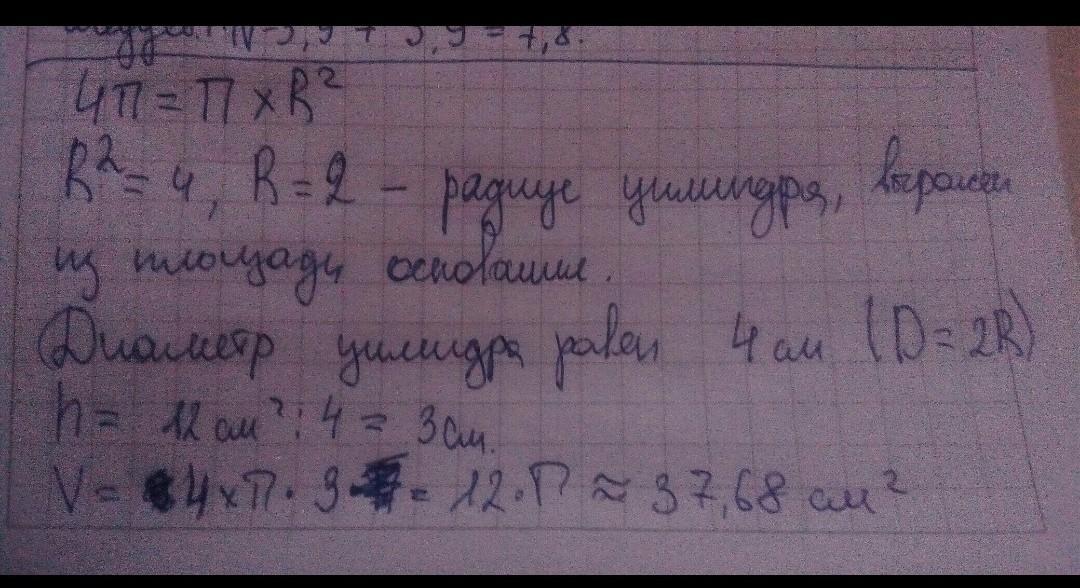 3,9 + 3,9 = 7,8.
4П = П × R²
R² = 4, R = 2 – радиус цилиндра, выражен
из площади основания.
Диаметр цилиндра равен 4 см (D = 2R)
h = 12 см² : 4 = 3 см.
V = 4 × П · 3 = 12 · П ≈ 37,68 см²